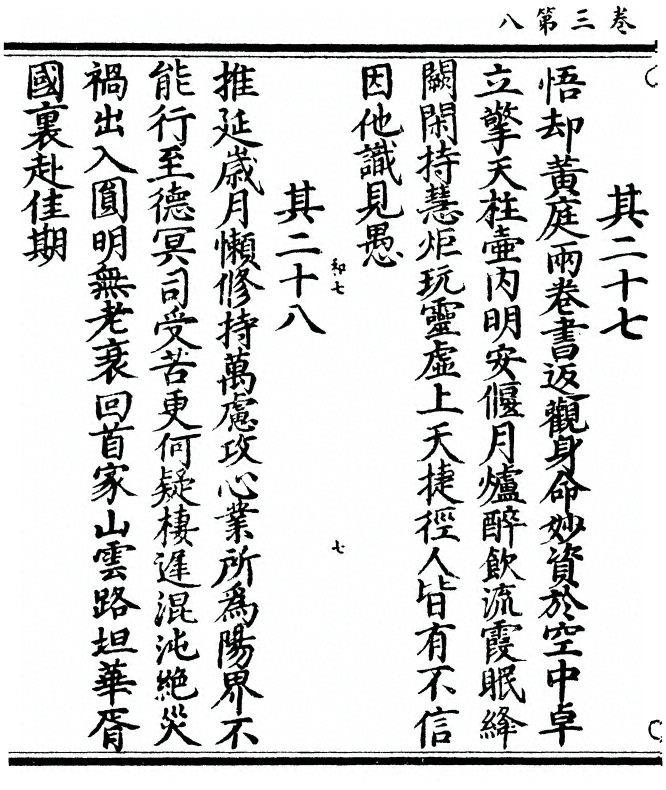 八第三卷
其二十七
悟却黃庭兩卷書返觀身命妙資於空中卓
立擎天柱壺內明安偃月爐醉飲流霞眠絳
闕閑持慧炬玩靈虛上天捷徑人皆有不信
因他識見愚
和七
七
其二十八
推延歲月懶修持萬慮攻心業所爲陽界不
能行至德冥司受苦更何疑棲遲混沌絶災
禍出入圓明無老衰回首家山雲路坦華胥
國裏赴佳期